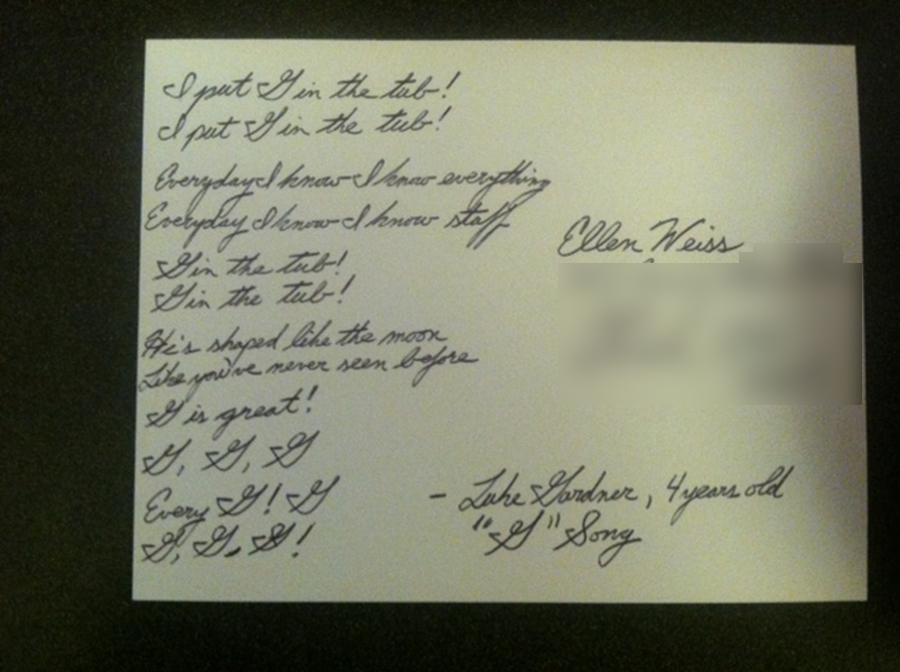 I put G in the tub!
I put G in the tub!
Everyday I know I know everything
Everyday I know I know staff
G in the tub!
G in the tub!
He's shaped like the moon
Like you've never seen before
G is great!
G, G, G
Every G! G
G, G, G!
Ellen Weiss
- Luke Gardner, 4 years old
"G" Song